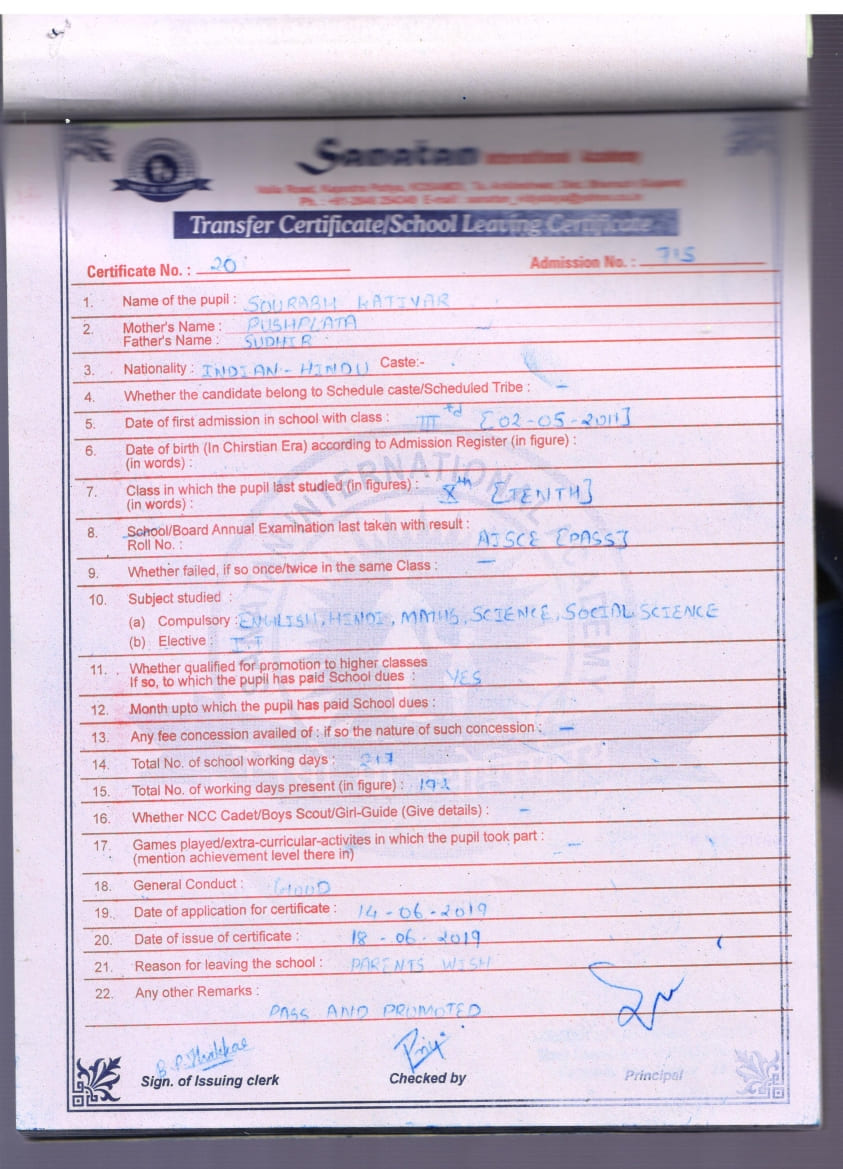 Sanatan International Academy
Transfer Certificate/School Leaving Certificate
Certificate No. : 20 Admission No. : 715
1. Name of the pupil : SOURABH KATIYAR
2. Mother's Name : PUSHPLATA
Father's Name : SUDHIR
3. Nationality : INDIAN - HINDU Caste:-
4. Whether the candidate belong to Schedule caste/Scheduled Tribe : –
5. Date of first admission in school with class : III rd [02-05-2011]
6. Date of birth (In Chirstian Era) according to Admission Register (in figure) :
(in words) :
7. Class in which the pupil last studied (in figures) : X th [TENTH]
(in words) :
8. School/Board Annual Examination last taken with result :
Roll No. : AISCE [PASS]
9. Whether failed, if so once/twice in the same Class : –
10. Subject studied :
(a) Compulsory : ENGLISH, HINDI, MATHS, SCIENCE, SOCIAL SCIENCE
(b) Elective : I.T
11. Whether qualified for promotion to higher classes
If so, to which the pupil has paid School dues : YES
12. Month upto which the pupil has paid School dues :
13. Any fee concession availed of : if so the nature of such concession : –
14. Total No. of school working days : 217
15. Total No. of working days present (in figure) :
16. Whether NCC Cadet/Boys Scout/Girl-Guide (Give details) : –
17. Games played/extra-curricular-activites in which the pupil took part : –
(mention achievement level there in)
18. General Conduct : GOOD
19. Date of application for certificate : 14-06-2019
20. Date of issue of certificate : 18-06-2019
21. Reason for leaving the school : PARENTS WISH
22. Any other Remarks :
PASS AND PROMOTED
Sign. of Issuing clerk Checked by Principal
SANATAN INTERNATIONAL ACADEMY